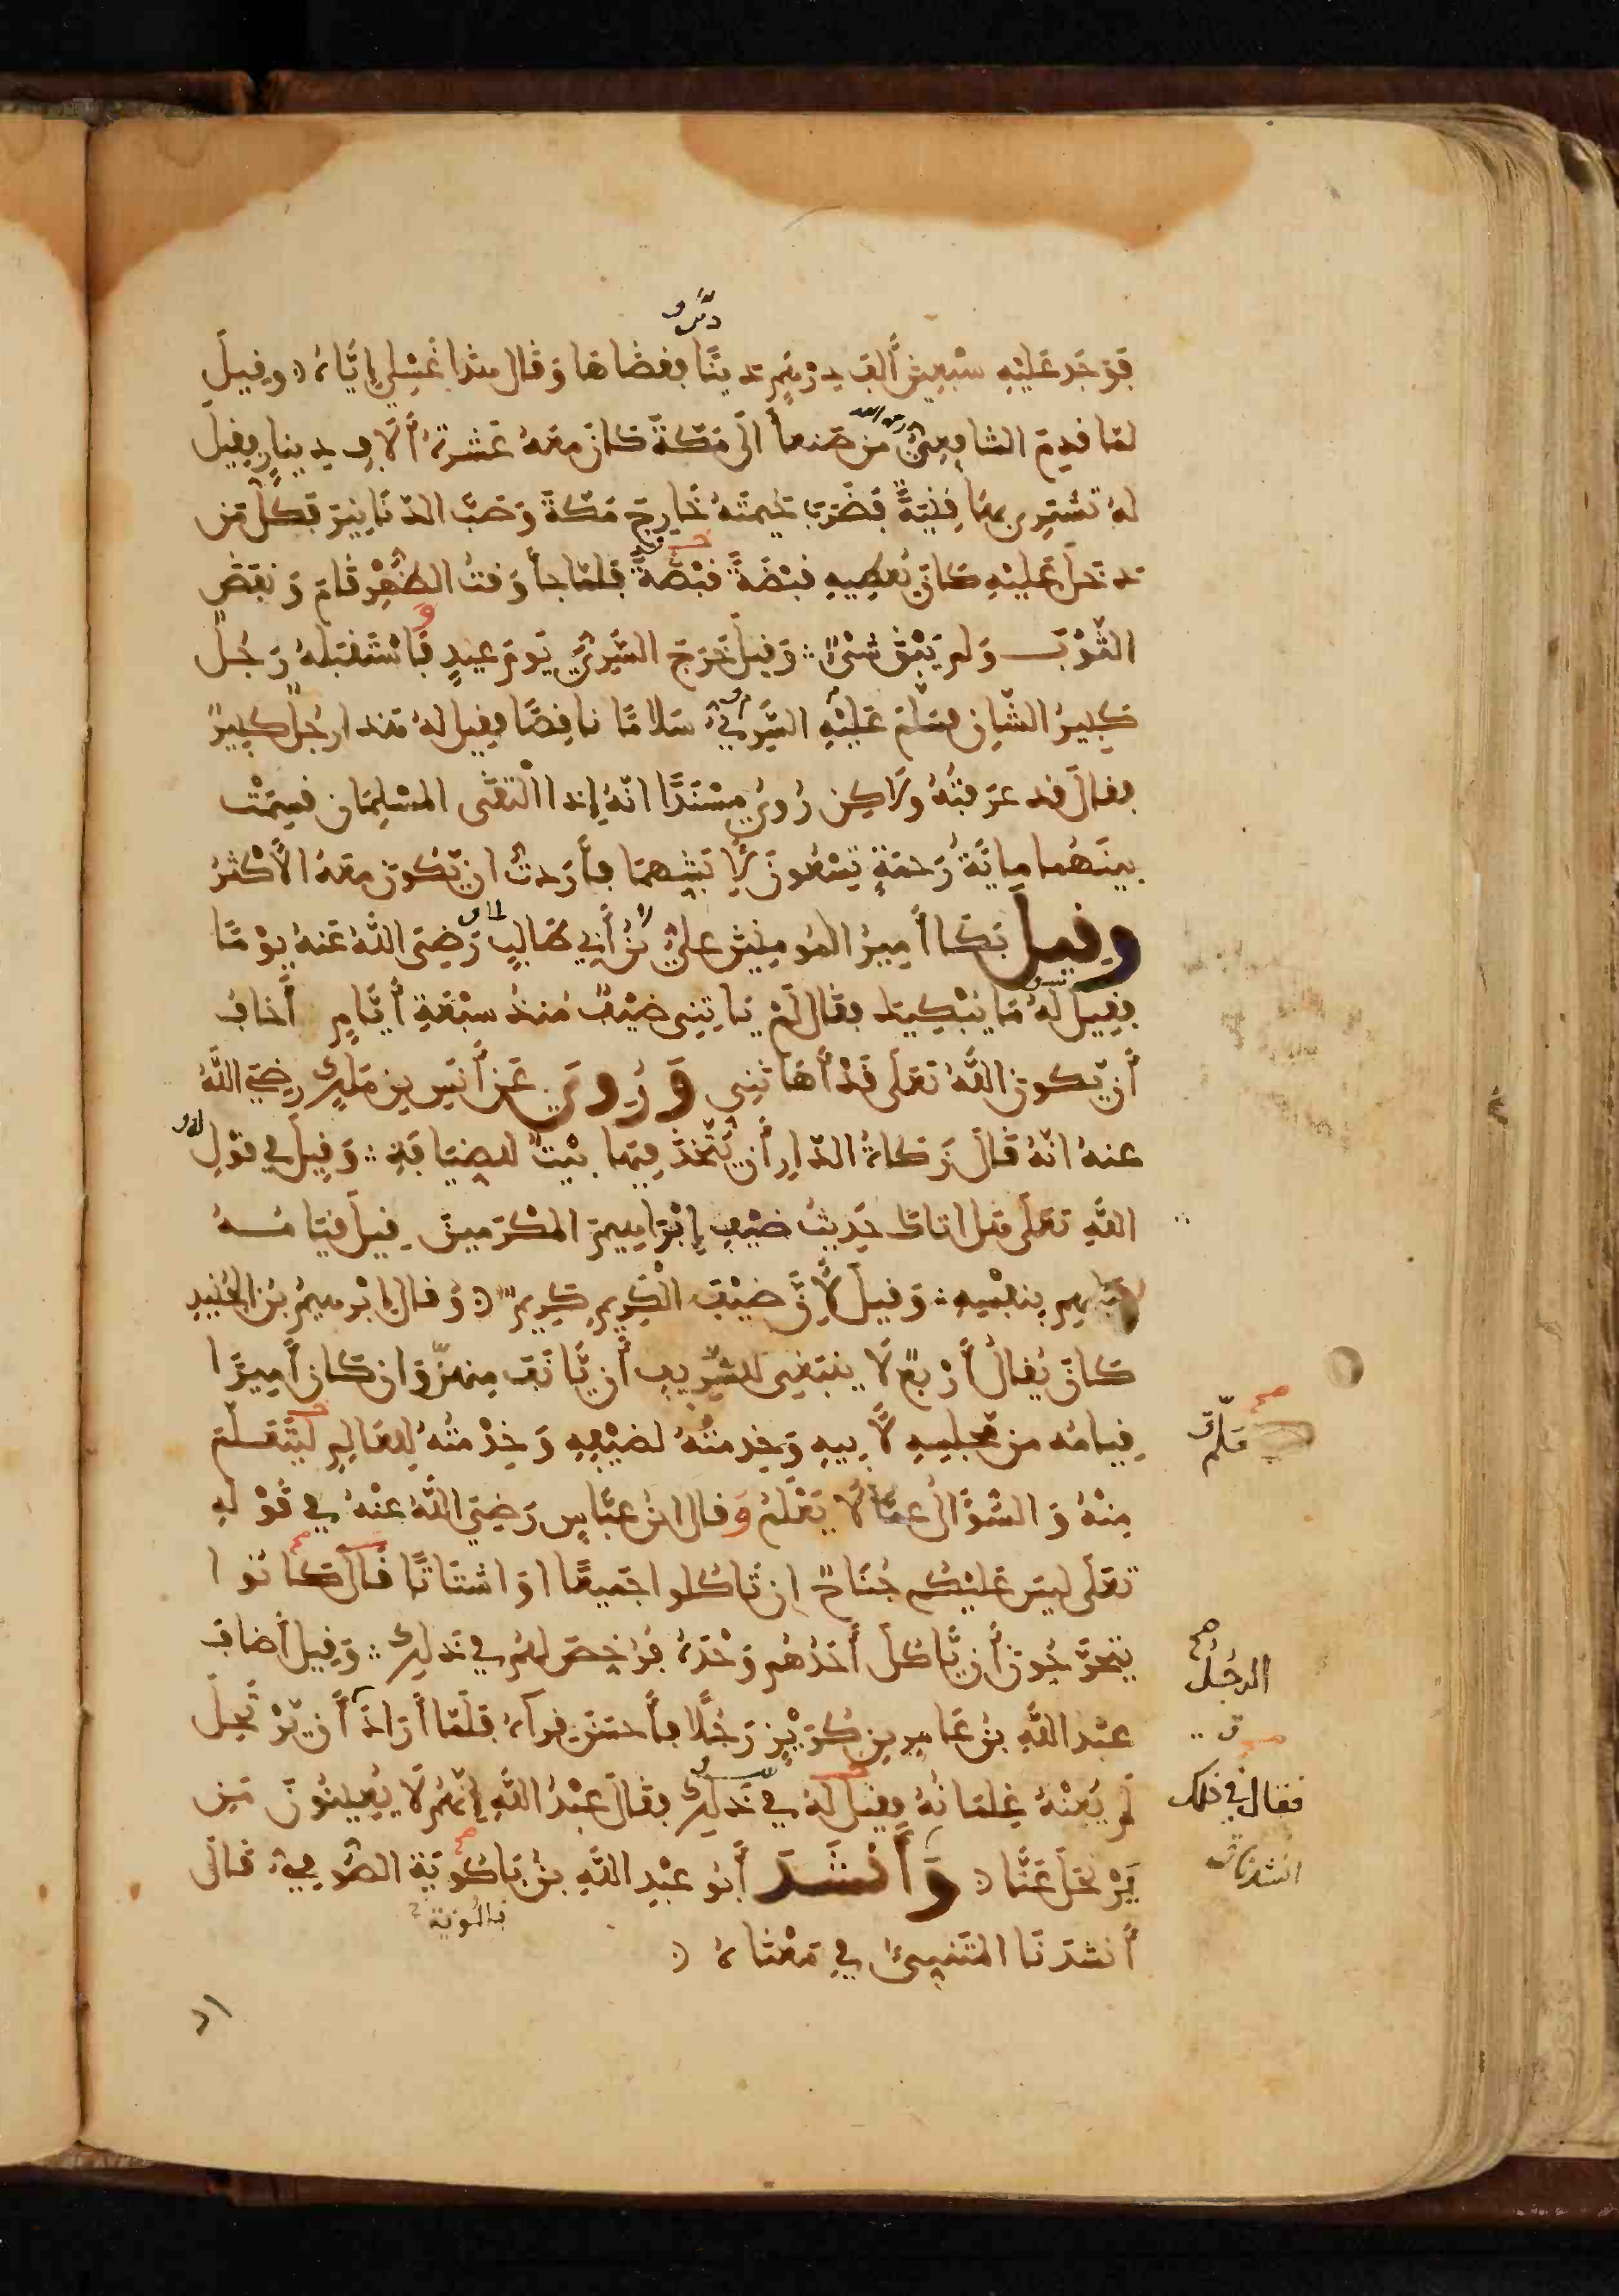 دين
فَوَجَدَ عَلَيْهِ سَبْعِينَ أَلْفَ دِرْهَمٍ دَيْنًا فقضاها وَقَال هذا غَسْلِي إِيَّاهُ وقيلَ
لما قدِمَ الشافِعِيُّ من صَنعاَ الَى مَكّةَ كانَ معَهُ عَشرَةُ ءَالَافِ دينارٍ فقيلَ
رحمه الله
لهُ تَشْتَرِى بهَا قِنْيَةً فَضَرَبَ خيمتَهُ خَارِجَ مَكّةَ وَصَبَّ الدّنَانِيرَ فَكلّ مَن
دخلَ عَلَيْهِ كانَ يُعطِيهِ قَبْضَةً قَبْضَةً فلمّا جاَ وَقتُ الظُّهْرِ قَامَ وَنَفَضَ
الثَّوْبَ وَلم يَبْقَ شَىْءٌ وَقِيلَ خَرَجَ السَّرِيُّ يَومَ عيدٍ فَاسْتَقبَلَهُ رَجُلٌ
كبيرُ الشّانِ فسَلّمَ عَلَيْهِ السَّرِيُّ سَلامًا ناقِصًا فقيل لهُ هذا رَجُلٌ كبِيرٌ
فقالَ قد عَرَفتُهُ ولَاكِن رُوِيَ مسْنَدًا انّهُ إذا الْتَقَى المسْلِمَان قسِمَتْ
بينَهُما مِايَةُ رَحمَةٍ تِسْعُونَ لِأَبَشِّهِمَا فأرَدتُ ان يّكونَ معَهُ الأَكْثَرُ
وقيل بَكَا أَمِيرُ المُومِنينَ عليُّ بنُ أَبِي طَالِبٍ رَضِيَ اللَّهُ عَنهُ يوْمًا
فقِيلَ لَهُ مَا يُبْكِيكَ فقَال لَمْ يَاتِنِى ضَيْفٌ مُنذُ سَبْعَةِ أَيَّامٍ أَخَافُ
أَن يّكونَ اللَّهُ تعَلَى قَدْ أَهَانَنِى وَرُوِيَ عَن أَنَسِ بنِ مَلِكٍ رضِيَ اللَّهُ
عنهُ انّهُ قَالَ زَكاةُ الدّارِ أَن يُّتّخَذَ فيهَا بيْتٌ للضِيَافَةِ وَقِيلَ في قَوْلِ
اللَّهِ تعَلَى هَل اتاكَ حَدِيثُ ضَيْفِ إِبْرَاهِيمَ المكْرَمينَ قيلَ قِيَامُهُ
عَلَيهِم بِنَفْسِهِ وَقيلَ لِأَنَّ ضَيْفَ الْكَرِيمِ كَرِيمٌ وَقال إِبْرهيمُ بنُ الجُنَيدِ
كانَ يُقالُ أَرْبعٌ لَا ينبَغِى للشَّرِيفِ أَن يَّانَفَ مِنهنَّ وَان كانَ أَمِيرًا
قِيامُه من مَجلِسِهِ لأَبِيهِ وَخِدمتُهُ لضَيْفِهِ وَخِدْمَتُهُ لِلعَالِمِ لِيَتَعَلَّمَ
مِنْهُ وَالسُّؤَالُ عمَّا لَا يَعْلَمُ وَقال ابنُ عبّاسٍ رَضِيَ اللَّهُ عَنْهُ في قَوْلهِ
تعَلَى ليسَ عَليْكُم جُنَاحٌ ان تَاكُلوا جَميعًا اوَ اشتاتًا قَالَ كانُوا
يتحَرَّجُونَ أَن يَّاكُلَ أَحَدُهُم وَحْدَهُ فَرُخِّصَ لهُم في ذلِكَ وَقِيلَ أَضَافَ
عبْد اللَّهِ بنُ عَامِرِ بنِ كُرَيْزٍ رَجُلًا فأَحسَنَ قِرآهُ فلَمّا أَرَادَ أَن يّرْتَحِلَ
لَم يُعِنْهُ غِلمَانُهُ فقيل لهُ في ذَلِكَ فقَالَ عبْدُ اللَّهِ إِنّهُم لَا يُعِينُونَ مَن
يَرْتَحلُ عَنَّا وَأَنشَدَ أَبُو عبْدِ اللَّهِ بنُ بَاكُويَةَ الصُّوفِيُّ قَالَ
أَنشَدَنَا المتَنَبِيُّ في مَعْنَاهُ
ملّك
الرجُل
فقال في ذلك
انشدنا